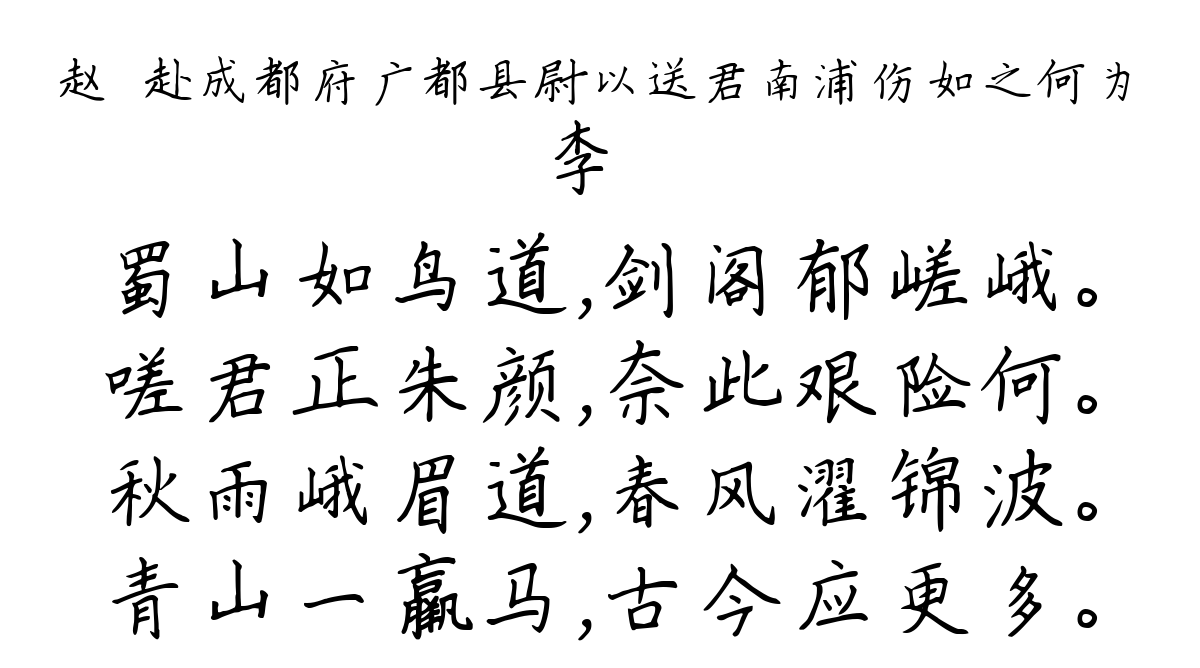 赵 赴成都府广都县尉以送君南浦伤如之何为
李
蜀山如鸟道,剑阁郁嵯峨。
嗟君正朱颜,奈此艰险何。
秋雨峨眉道,春风濯锦波。
青山一羸马,古今应更多。